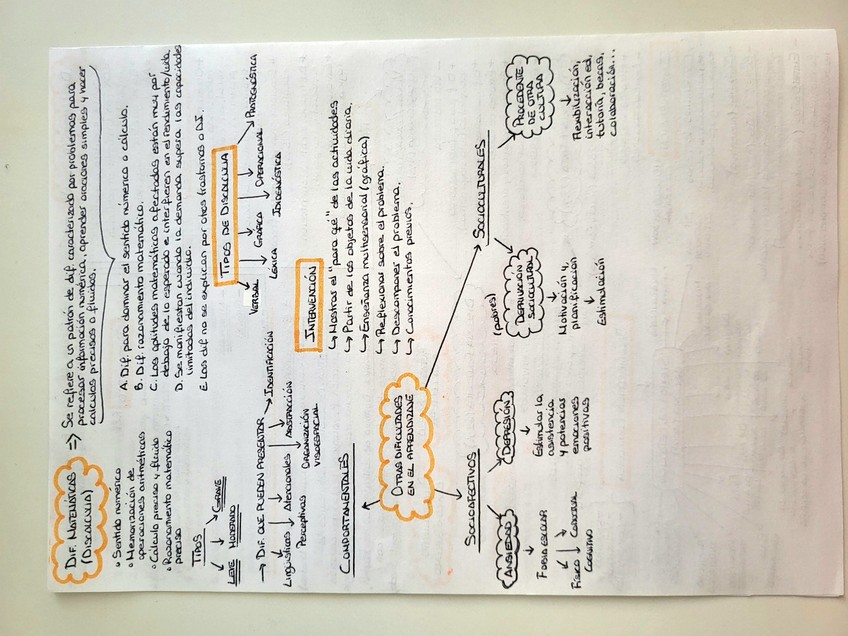 DIF. MATEMÁTICAS
(DISCALCULIA)
=> Se refiere a un patrón de dif. caracterizado por problemas para
procesar información numérica, aprender oraciones simples y hacer
cálculos precisos o fluidos.
• Sentido numérico
• Memorización de
operaciones aritméticas
• Cálculo preciso y fluido
• Razonamiento matemático
preciso
A. Dif. para dominar el sentido numérico o cálculo.
B. Dif. razonamiento matemático.
C. Las aptitudes matemáticas afectadas están muy por
debajo de lo esperado e interfieren en el rendimiento/vida
D. Se manifiestan cuando la demanda supera las capacidades
limitadas del individuo.
E. Las dif no se explican por otros trastornos o DI.
TIPOS
LEVE
MODERADO
GRAVE
→ DIF. QUE PUEDEN PRESENTAR
Lingüísticas
Perceptivas
Atencionales
ORGANIZACIÓN
VISOESPACIAL
ABSTRACCIÓN
IDENTIFICACIÓN
TIPOS DE DISCALCULIA
VERBAL
LÉXICA
GRÁFICA
IDIDENÓSTICA
OPERACIONAL
PRATOGNÓSTICA
INTERVENCIÓN
↳ Mostrar el "para qué" de las actividades
↳ Partir de los objetos de la vida diaria.
↳ Enseñanza multisensorial (gráfica)
↳ Reflexionar sobre el problema.
↳ Descomponer el problema.
↳ Conocimientos previos.
OTRAS DIFICULTADES
EN EL APRENDIZAJE
COMPORTAMENTALES
SOCIOAFECTIVOS
ANSIEDAD
FOBIA ESCOLAR
FÍSICO
COGNITIVO
CONDUCTUAL
DEPRESIÓN
Estimular la
asistencia
y potenciar
emociones
positivas
SOCIOCULTURALES
(pobres)
DEPRIVACIÓN
SOCIOCULTURAL
Motivación y
planificación
Estimulación
PROCEDENTE
DE OTRA
CULTURA
Flexibilización,
interacción ed,
tutoría, becas,
colaboración...